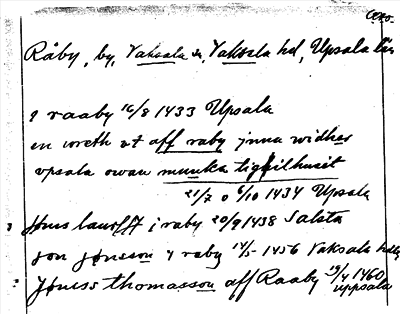 Råby, by, Vaksala sn, Vaksala hd, Upsala län
i raaby 16/8 1433 Upsala
en woreth at aff raby jnnu widhes
vpsala owan munka tighilhusit
21/7 o 6/10 1434 Upsala
Jöns laurss j raby 20/9 1438 Salsta
jon jönsson i raby 14/5 1456 Vaksala hdg
Jönss thomasson aff Raaby 19/4 1460 uppsala